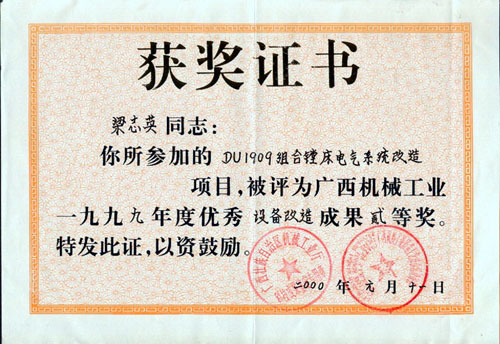 获奖证书
梁志英同志：
你所参加的 DU1909组合镗床电气系统改造
项目，被评为广西机械工业
一九九九年度优秀设备改造成果贰等奖。
特发此证，以资鼓励。
广西壮族自治区机械工业厅
二000年元月十一日